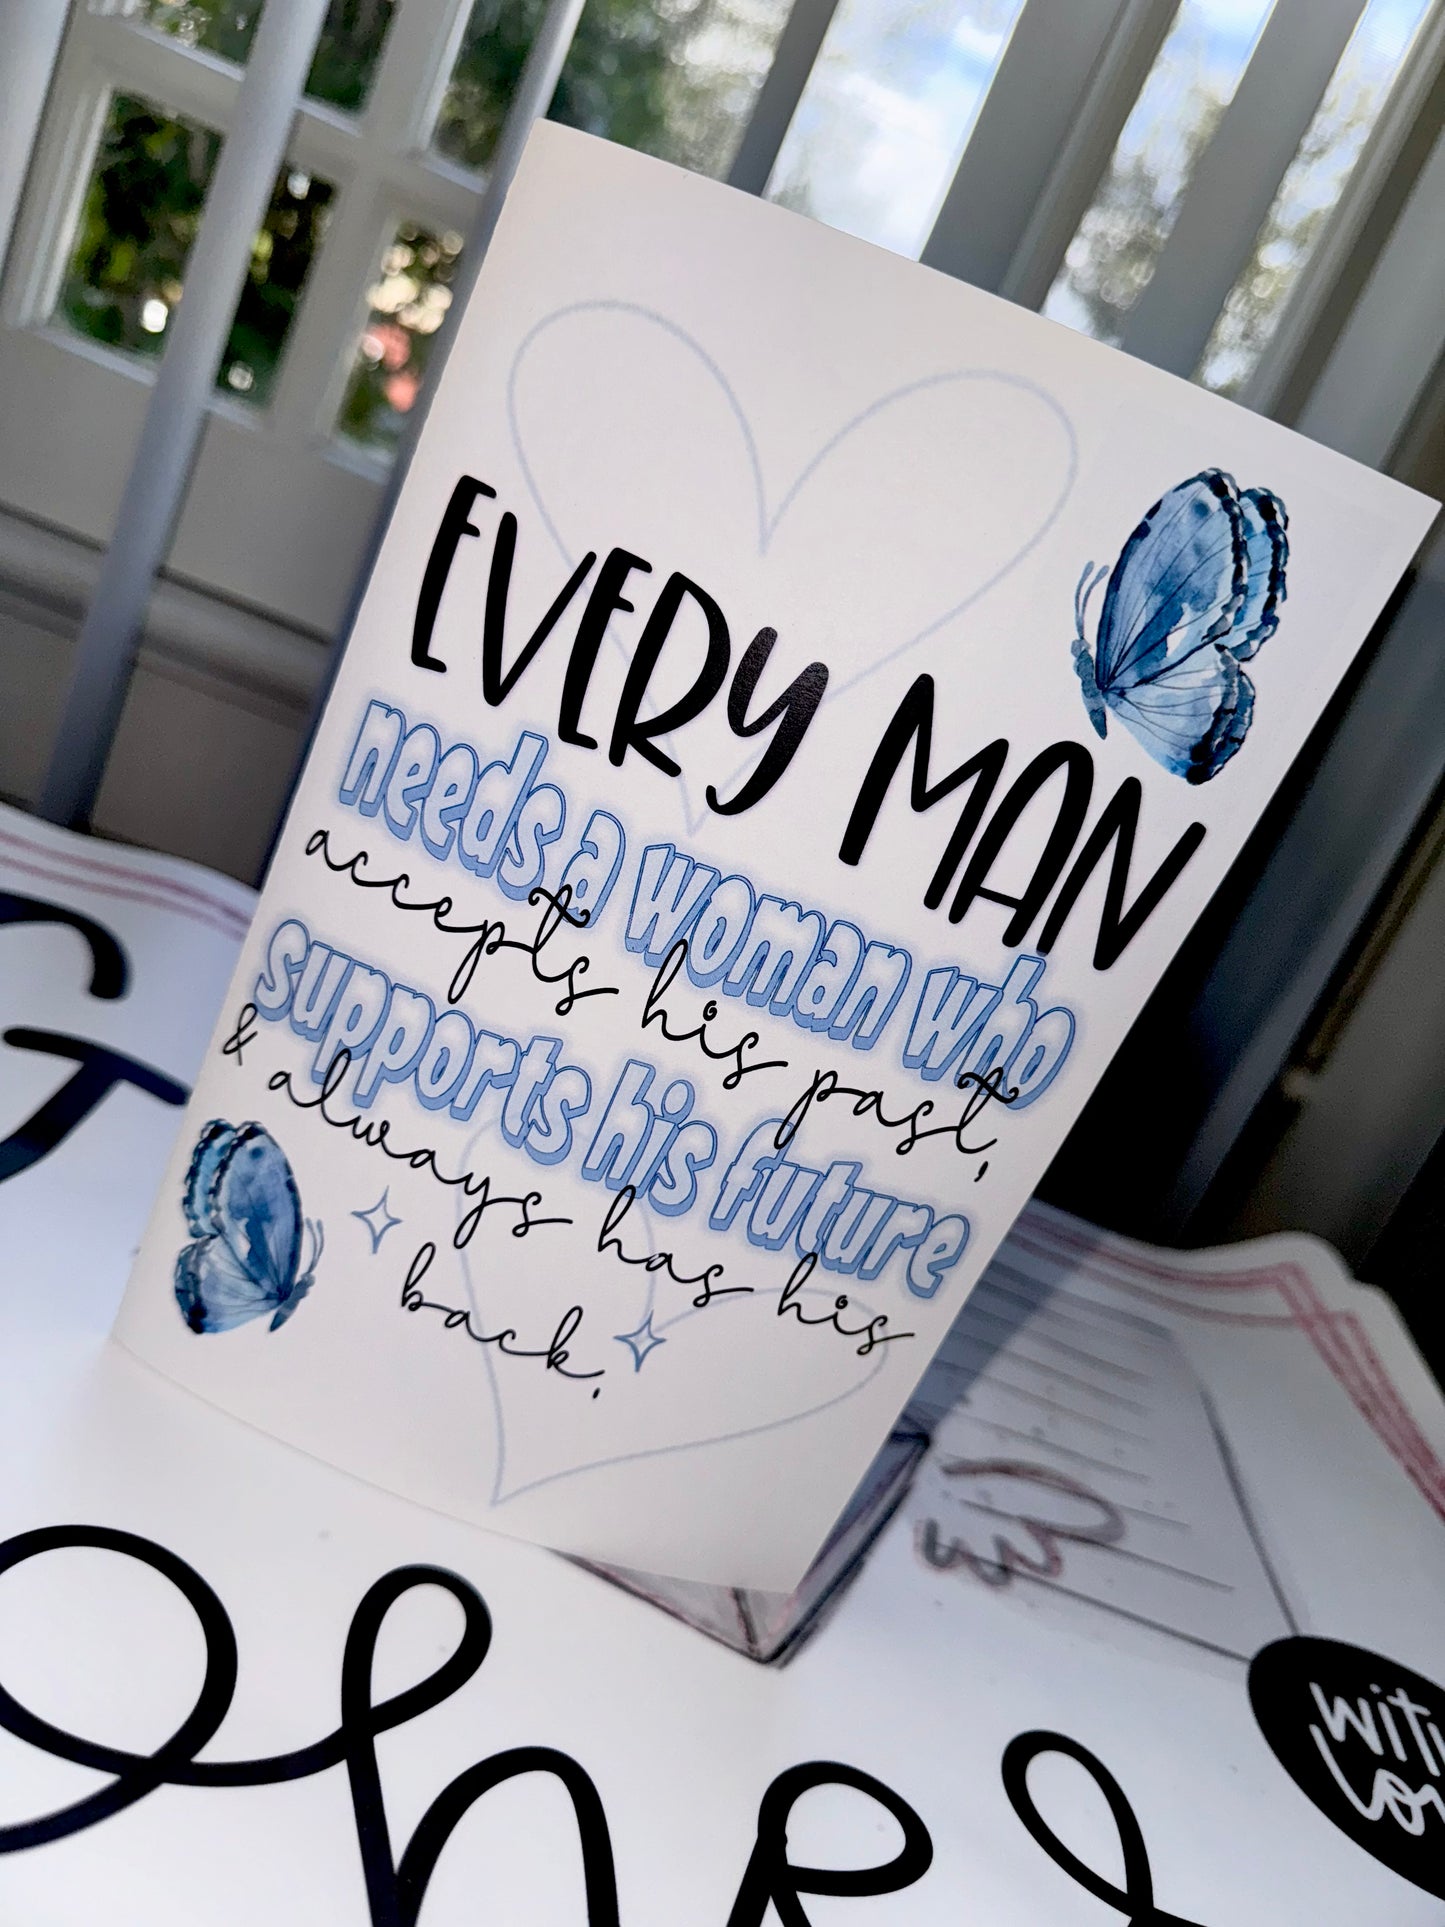 EVERY MAN
needs a woman who
accepts his past,
supports his future
& always has his
back.